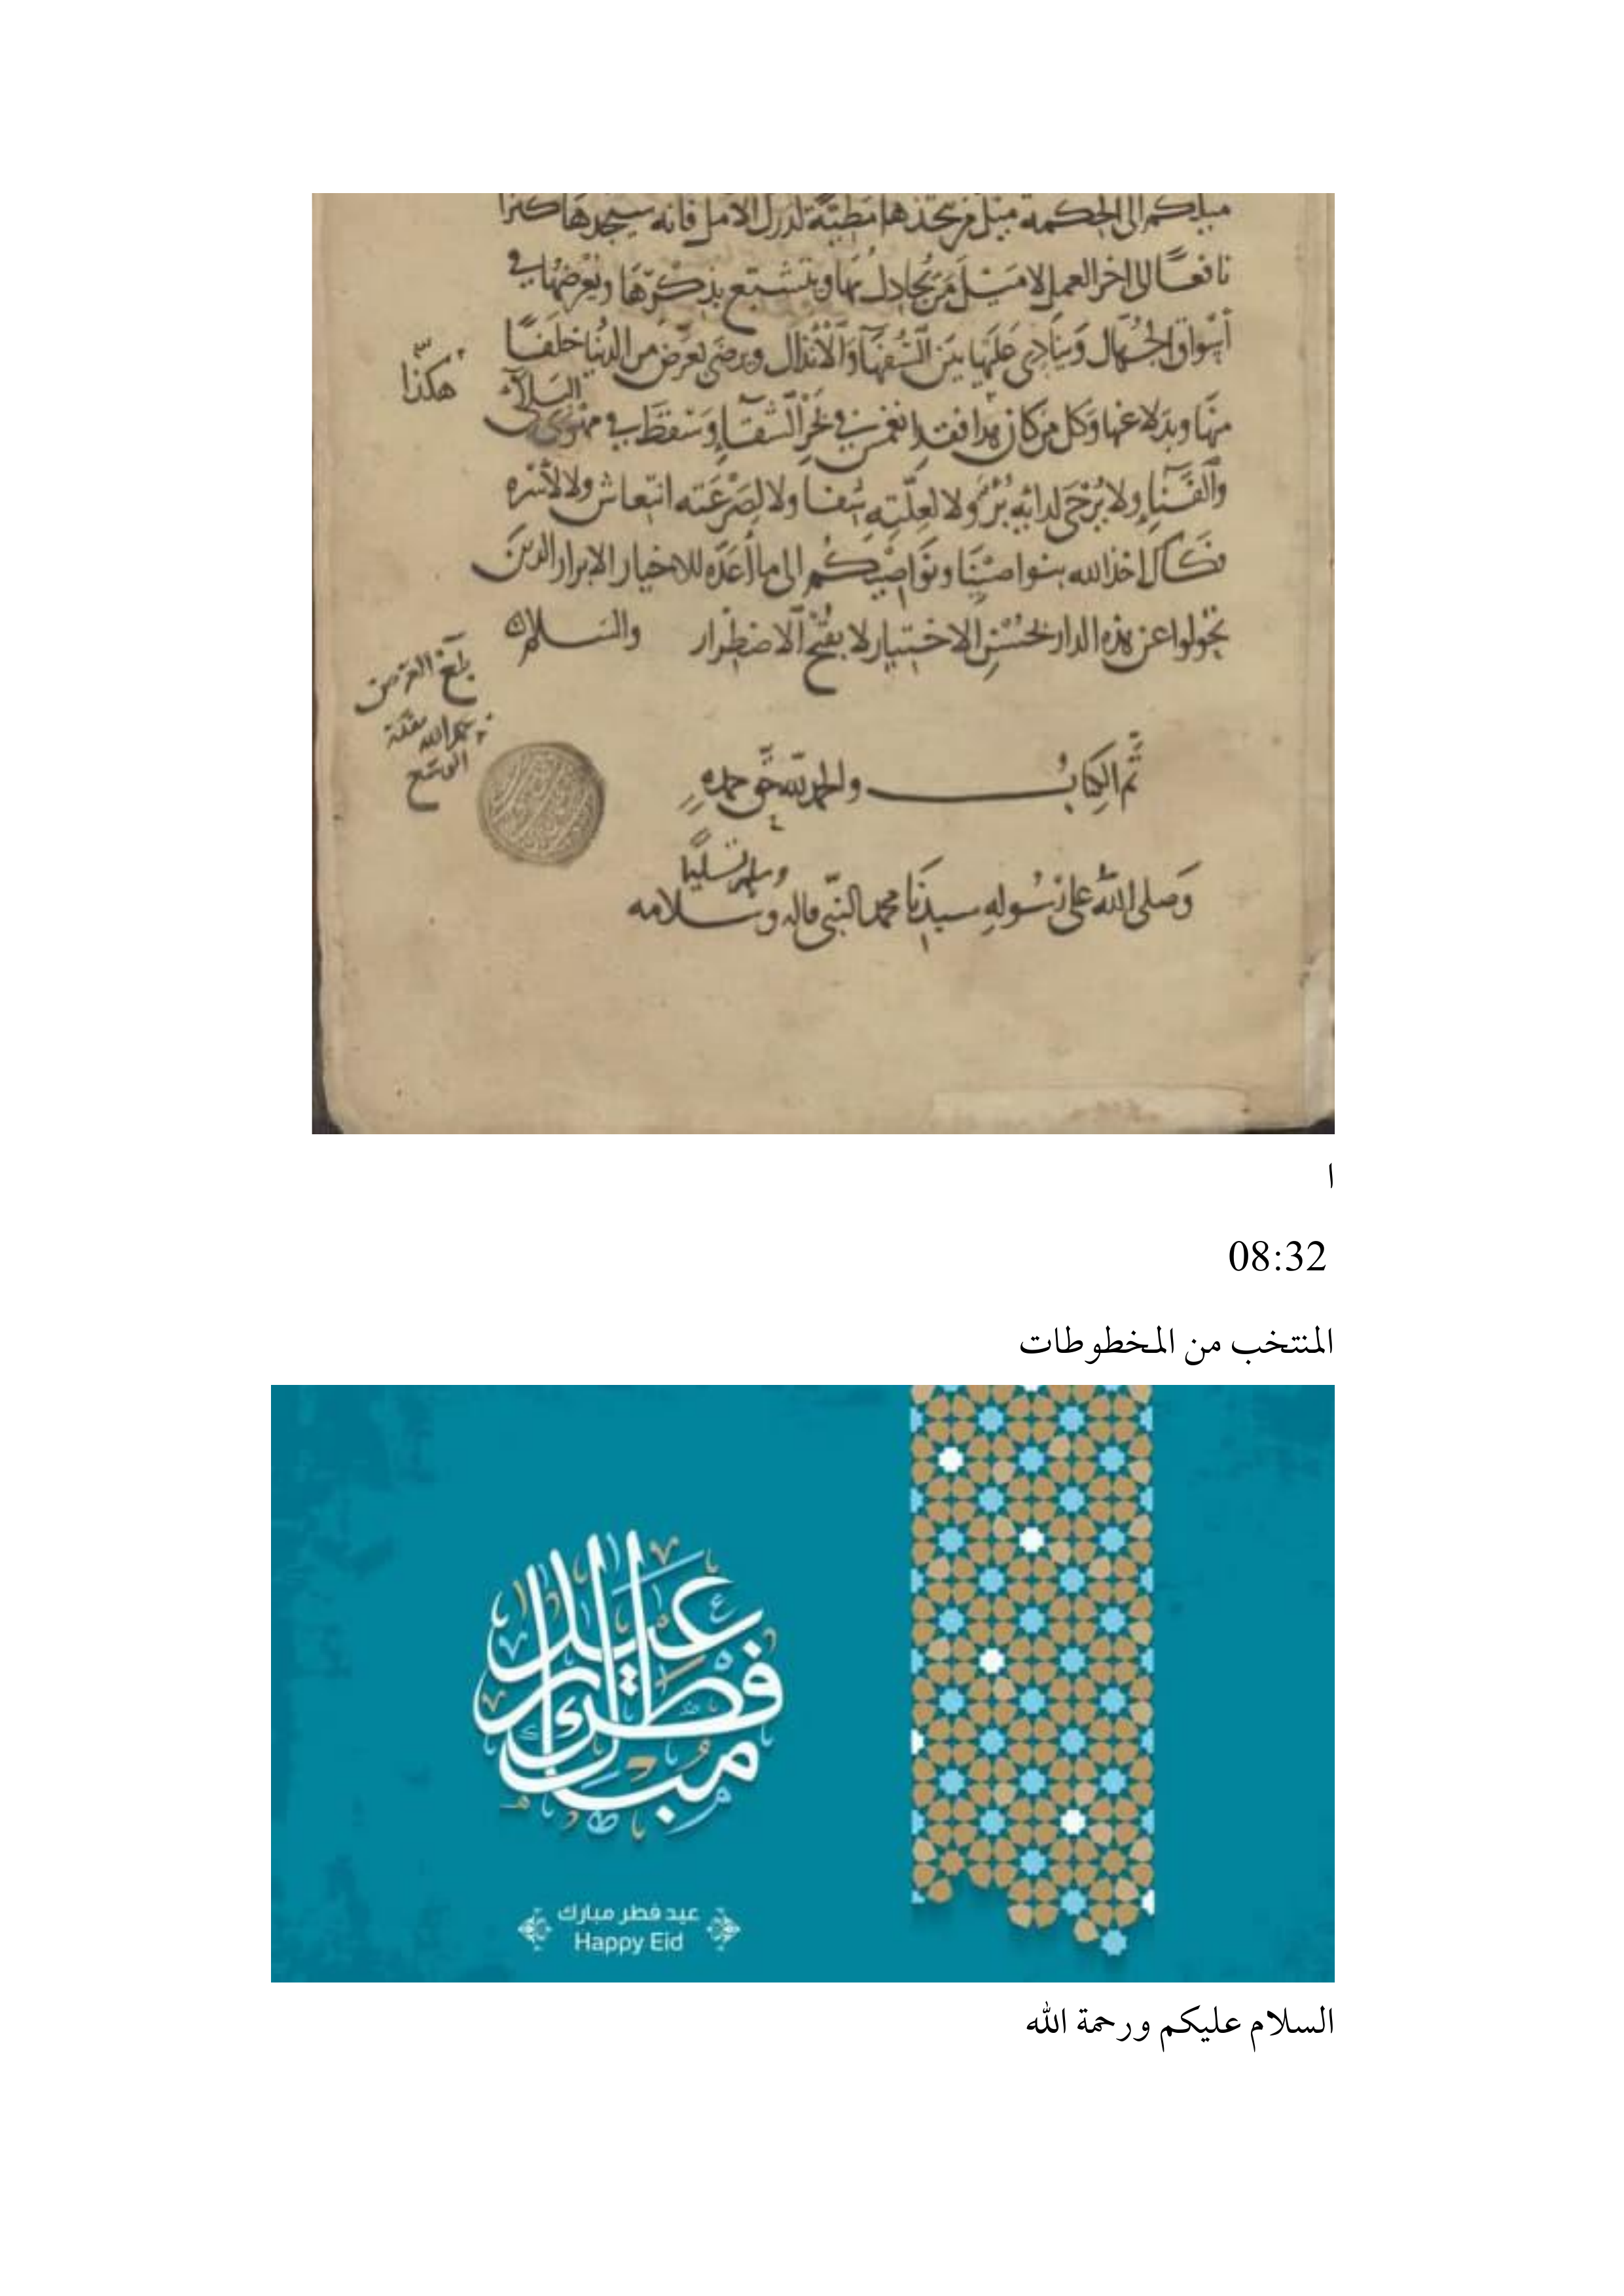 ميلكم إلى الحكمة ميل من يتخذها مطية لدرك الامل فانه سيجدها كنزا
نافعًا الى اخر العمل لا مَيْلَ مَن يُجادِل بهَا ويتشبّع بذكرها ويَعْرضهُا في
أسْواق الجُهّال وَينادِى عَلَيها بَيَن السُّفهَاءَ وَالْأنذال ويرضَى بعَرَض من الدنْيا خلَفًا
هكذا
منهَا وبدلا عنها وَكل من كان هذا فقد انغمَس في الشقآءِ وَسَقطَ في مهْوى
البلآء
وَالفَنَآءِ ولا يُرْجَى لدائِهِ بُرْءٌ ولا لعِلّتِهِ شفا ولا لِصَرْعَته انتعاش ولا لأسْره
فكاك اخذ الله بنواصيْنَا ونوَاصِيْكُم الى ما أعَدّه للاخيار الابرار الذينَ
تحوّلوا عن هذه الدار بحُسْنِ الاختيار لا بقبْح الاضطرار والسَلام
بلغ العرض
بحمد الله
تَّم الكِتابُ والحمد للهِ حَّق حمده
وسلم تسليما
وَصلى اللهُ على رسُولهِ سيدنَا محمد النبّي واله وسلامه
ا
08:32
المنتخب من المخطوطات
عيد
فطر
مبارك
عيد فطر مبارك
Happy Eid
السلام عليكم ورحمة الله